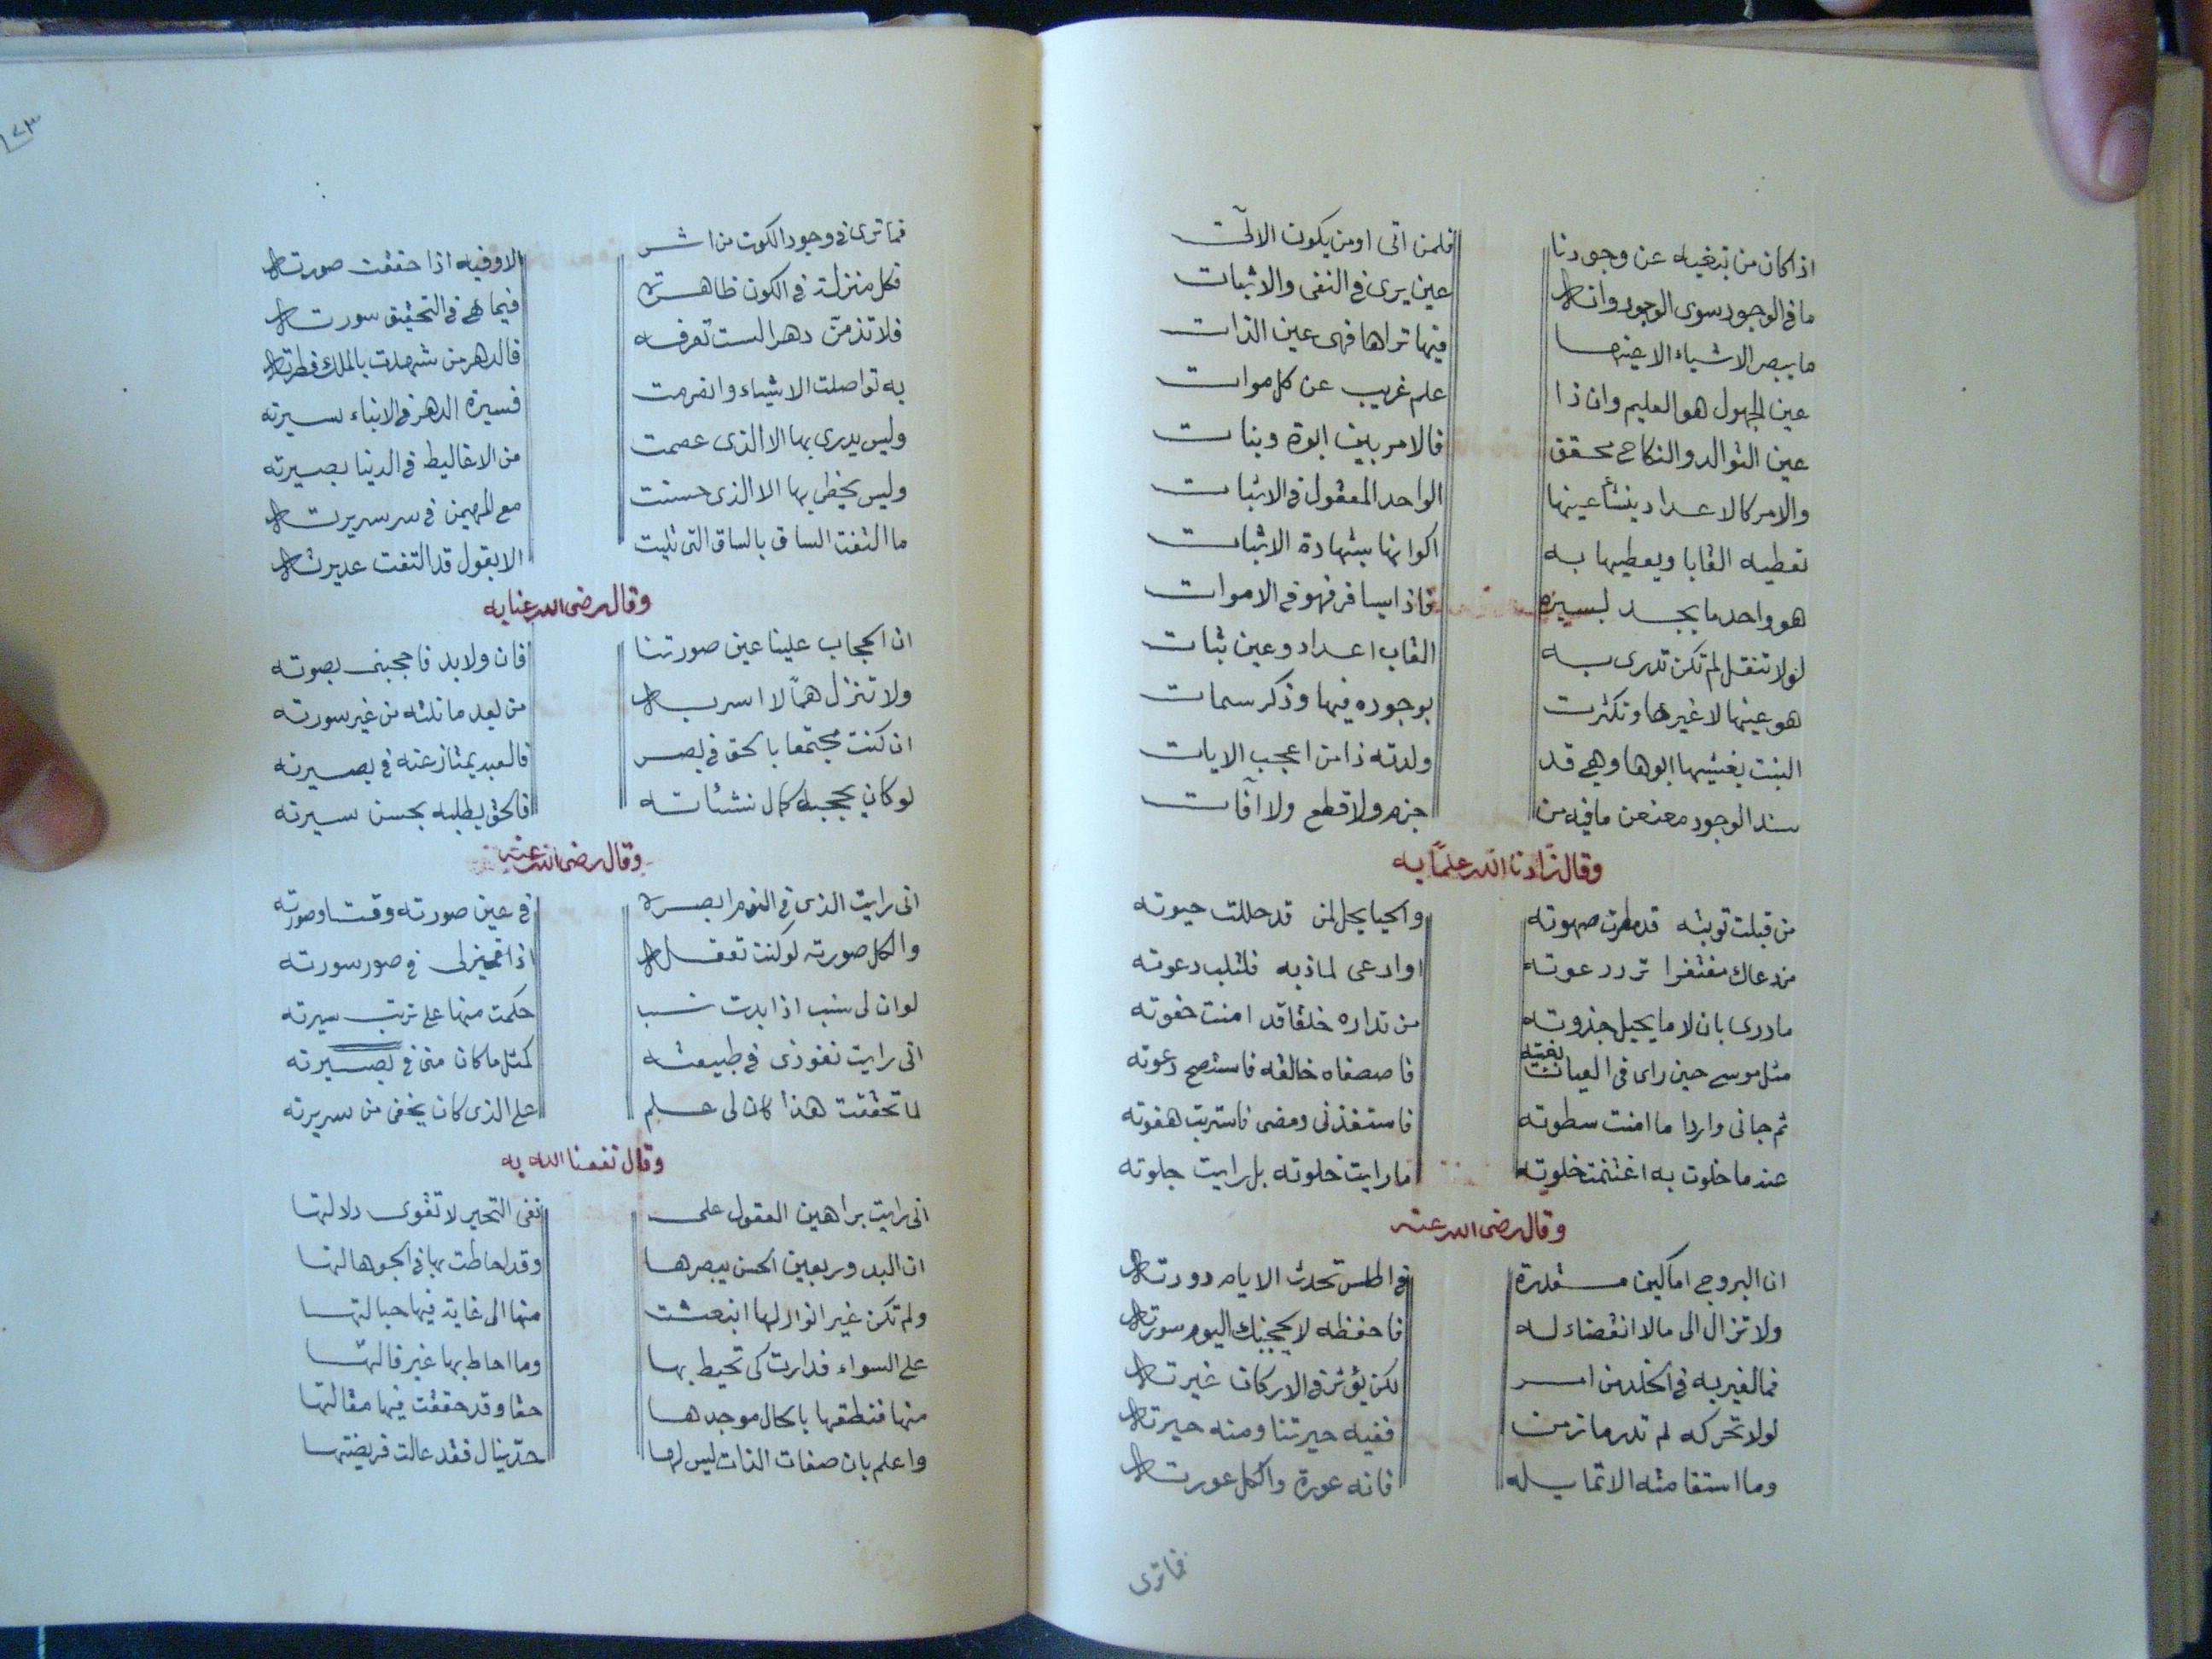 اذا كان من تبغيه عن وجودنا فلمن اتى او من يكون الآتى
ما فى الوجود سوى الوجود وانه عين يرى فى النفى والاثبات
ما يبصر الاشياء الا عينها فيها تراها فهى عين الذات
عين الجهول هو العليم وان ذا علم غريب عن كل موات
عين التوالد والنكاح محقق فالامر بين ابوة وبنات
والامر كالاعداد ينشأ عينها الواحد المعقول فى الاثبات
تعطيه القابا ويعطيها به اكوانها بشهادة الاثبات
هو واحد ما يجد لسيره فاذا يسافر فهو فى الاموات
لولا تنقل لم تكن تدرى به القاب اعداد وعين ثبات
هو عينها لا غيرها وتكثرت بوجوده فيها وذكر سمات
البنت يغشيها ابوها وهى قد ولدته ذا من اعجب الايات
سند الوجود معنعن ما فيه من جزم ولا قطع ولا آفات
وقال زادنا الله علما به
من قبلت توبته قد مطرت صهوته والحيا يحل لمن قد حللت حبوته
من دعاك مفتقرا تردد عوته او ادعى لماذبه فلتلب دعوته
ما درى بان لا ما يحيل جذوته من تداره خلقا قد امنت خفوته
مثل موسى حين راى فى العيان بغيته فاصصفاه خالقه فاستصح دعوته
ثم جانى واردا ما امنت سطوته فاستفذنى ومضى فاستربت هفوته
عندما خلوت به اغتنمت خلوته ما رايت خلوته بل رايت جلوته
وقال رضى الله عنه
ان البروج اماكين مقدرة فى اطلس تحدث الايام دورته
ولا تزال الى ما لا انقضاء له فاحفظه لا يحجبنك اليوم سورته
فما لغيريه فى الخلد من امر لكن يؤثر فى الاركان غيرته
لولا تحركه لم تدر ما زمن ففيه حيرتنا ومنه حيرته
وما استقامته الا تمايله فانه عورة والكل عورته
فما ترى
١٧٣
فما ترى فى وجود الكون من اثر الا وفيه اذا حققت صورته
فكل منزلة فى الكون ظاهرة فيما هى فى التحقيق سورته
فلا تذمن دهرا لست تعرفه فالدهر من شهدت بالملك فطرته
به تواصلت الاشياء وانصرمت فسيرة الدهر فى الانباء سيرته
وليس يدرى بها الا الذى عصمت من الاغاليط فى الدنيا بصيرته
وليس يحظى بها الا الذى حسنت مع المهيمن فى سر سريرته
ما التفت الساق بالساق التى تليت الا يقول قد التفت عديرته
وقال رضى الله عنا به
ان الحجاب علينا عين صورتنا فان ولا بد فاحجبنى بصوته
ولا تنزل همًا لا اسر به من بعد ما نلته من غير سورته
ان كنت مجتمعا بالحق فى بصر فالعبد يمتاز عنه فى بصيرته
لو كان يحجبه كمال نشئاته فالحق يطلبه بحسن سيرته
وقال رضى الله عنه
انى رايت الذى فى النوم ابصره فى عين صورته وقتا وصورته
والكل صورته لو كنت تعقله اذا تميز لى فى صور سورته
لو ان لى سبب اذا بدت نسب حكمت منها على ترتيب سيرته
انى رايت نفوذى فى طبيعته كمثل ما كان منى فى بصيرته
لما تحققت هذا كان لى حلم على الذى كان يخفى من سريرته
وقال نفعنا الله به
انى رايت براهين العقول على نفى التحير لا تقوى دلالتها
ان البدور بعين الحسن يبصرها وقد احاطت بها فى الجو هالتها
ولم تكن غير انوار لها انبعثت منها الى غاية فيها حبالتها
على السواء فدارت كى تحيط بها وما احاط بها غير قالتها
منها فنطقها بالحال موجدها حقا وقد حققت فيها مقالتها
واعلم بان صفات الذات ليس لها حد ينال فقد عالت فريضتها